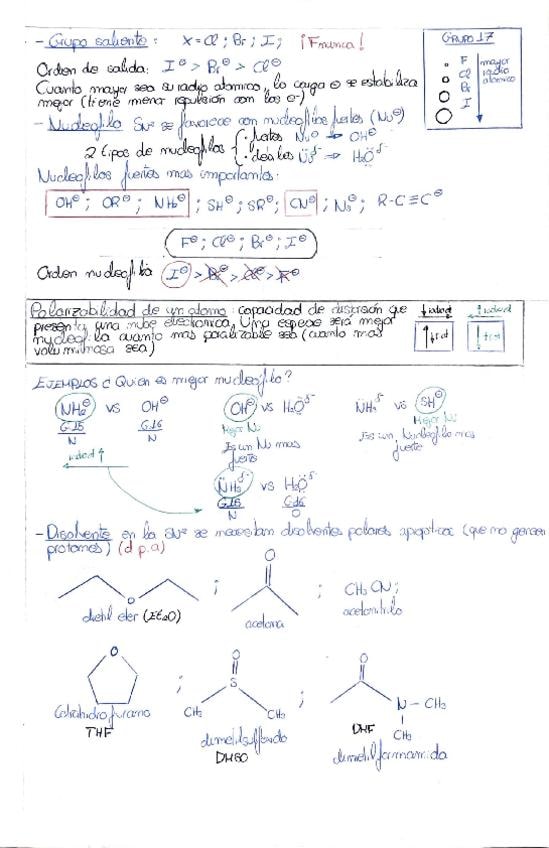 - Grupo saliente: X = Cl ; Br ; I ; ¡F nunca!
GRUPO 17
F
Cl
Br
I
mayor radio atomico
Orden de salida: I⊖ > Br⊖ > Cl⊖
Cuanto mayor sea su radio atomico, la carga ⊖ se estabiliza
mejor (tiene menor repulsión con los e-)
- Nucleofilo SN² se favorece con nucleofilos fuertes (Nu⊖)
2 tipos de nucleofilos { · fuertes Nu⊖ ⇒ OH⊖
· debiles ⇒ H₂Ö
Nucleofilos fuertes mas importantes:
OH⊖ ; OR⊖ ; NH₂⊖ ; SH⊖ ; SR⊖ ; CN⊖ ; N₃⊖ ; R-C≡C⊖
F⊖ ; Cl⊖ ; Br⊖ ; I⊖
Orden nucleofilia: I⊖ > Br⊖ > Cl⊖ > F⊖
Polarizabilidad de un atomo: capacidad de distorsión que
presenta una nube electronica. Una especie será mejor
nucleofila cuanto mas polarizable sea (cuanto mas
voluminosa sea)
EJEMPLOS ¿Quién es mejor nucleofilo?
NH₂⊖ vs OH⊖
G.15 G.16
N
OH⊖ vs H₂Ö δ-
Mejor Nu
Es un Nu mas
fuerte
N̈H₃ δ- vs SH⊖
Mejor Nu
Es un Nucleofilo mas
fuerte
N̈H₃ δ- vs H₂Ö δ-
G.15 G.16
N O
- Disolvente en la SN² se necesitan disolventes polares aproticos (que no generen
protones) (d.p.a)
O
dietil eter (Et₂O)
;
O
acetona
;
CH₃CN ;
acetonitrilo
O
tetrahidrofurano
THF
;
O
S
CH₃ CH₃
dimetilsulfoxido
DMSO
;
O
N - CH₃
CH₃
DMF
dimetilformamida